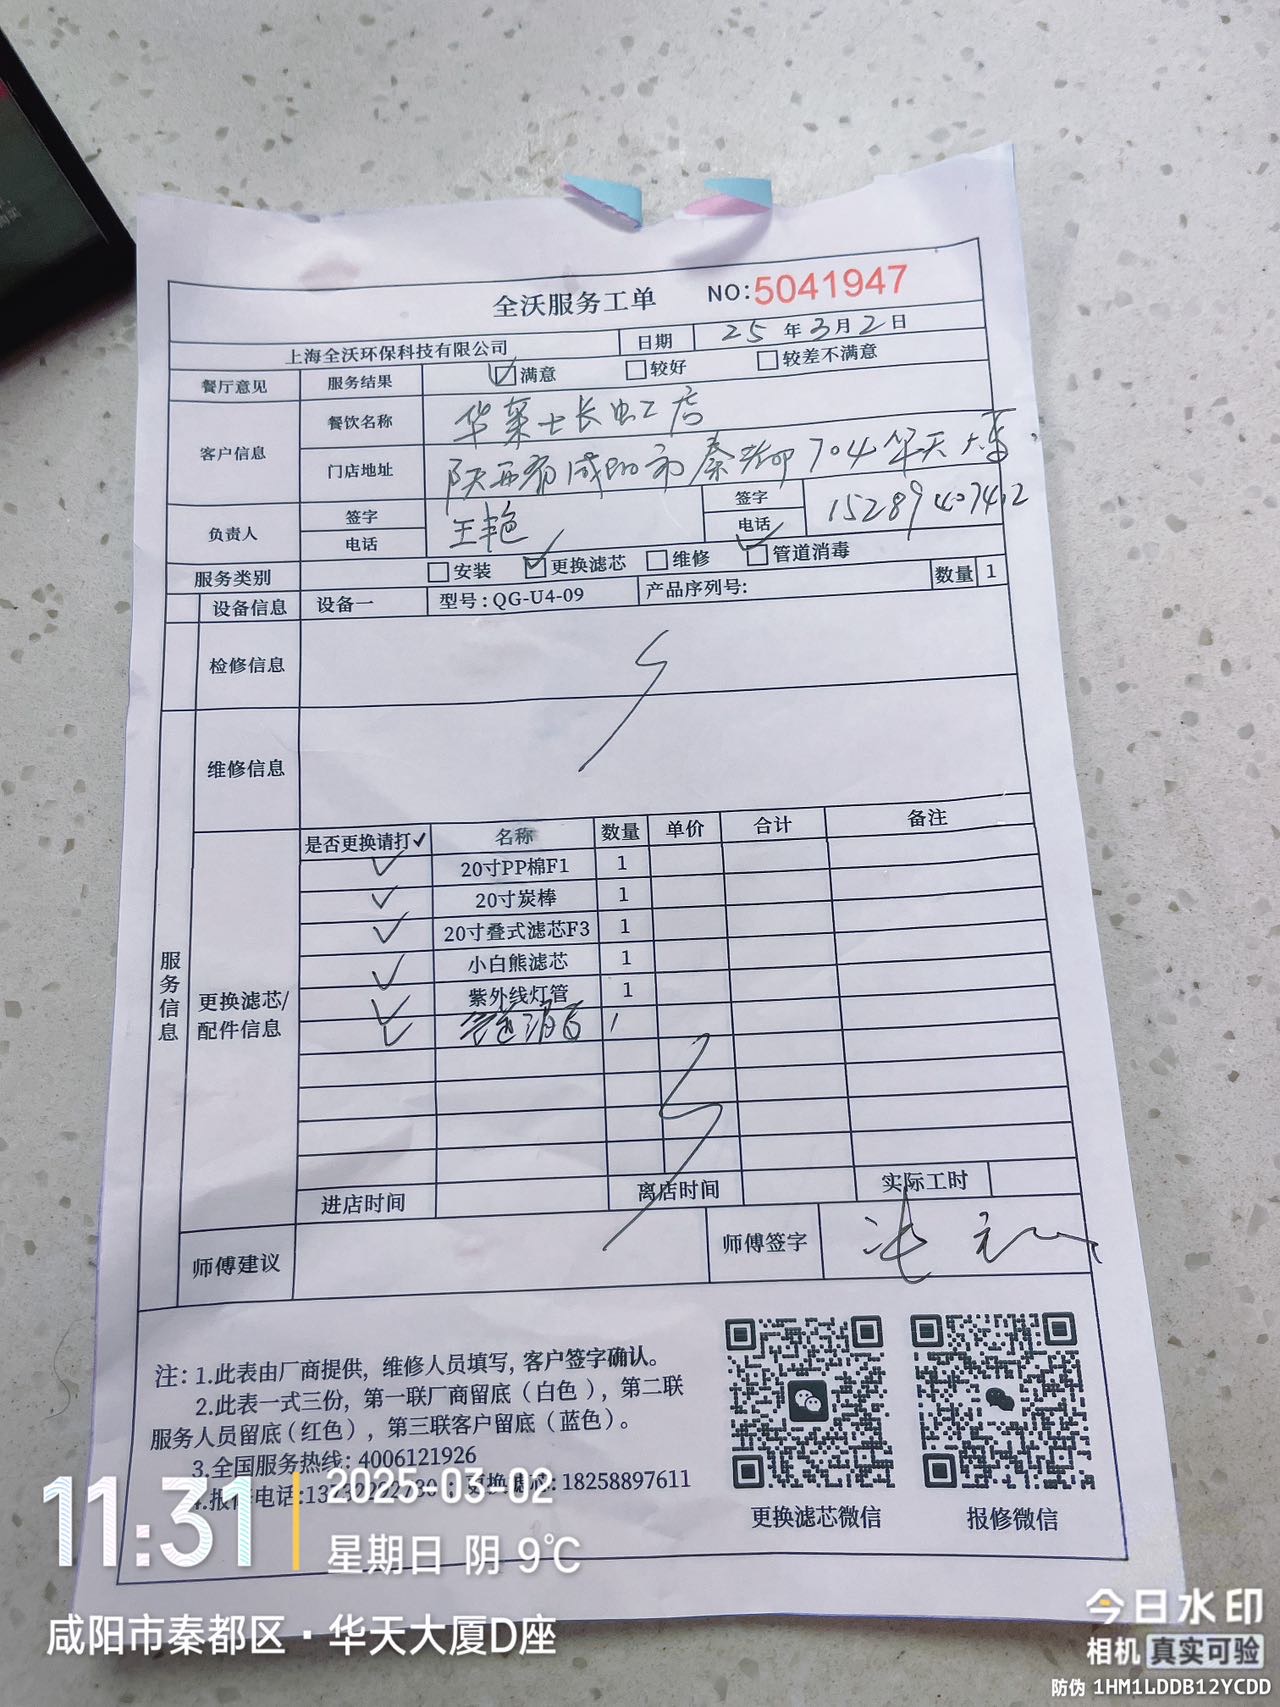 全沃服务工单 NO:5041947
上海全沃环保科技有限公司 日期 25年3月2日
餐厅意见 服务结果 满意 较好 较差不满意
客户信息 餐饮名称 华莱士长虹店
门店地址 陕西省咸阳市秦都704华天大厦
负责人 签字 王艳 签字
电话 电话 15289407412
服务类别 安装 更换滤芯 维修 管道消毒
设备信息 设备一 型号：QG-U4-09 产品序列号: 数量 1
检修信息
维修信息
服务信息
更换滤芯/配件信息
是否更换请打✓ 名称 数量 单价 合计 备注
✓ 20寸PP棉F1 1
✓ 20寸炭棒 1
✓ 20寸叠式滤芯F3 1
✓ 小白熊滤芯 1
✓ 紫外线灯管 1
✓ 管道消毒 1
进店时间 离店时间 实际工时
师傅建议 师傅签字
注：1.此表由厂商提供，维修人员填写，客户签字确认。
2.此表一式三份，第一联厂商留底（白色），第二联
服务人员留底（红色），第三联客户留底（蓝色）。
3.全国服务热线：4006121926
4.报修电话: 更换滤芯：18258897611
更换滤芯微信 报修微信
11:31 2025-03-02
星期日 阴 9℃
咸阳市秦都区·华天大厦D座
今日水印
相机 真实可验
防伪 1HM1LDDB12YCDD